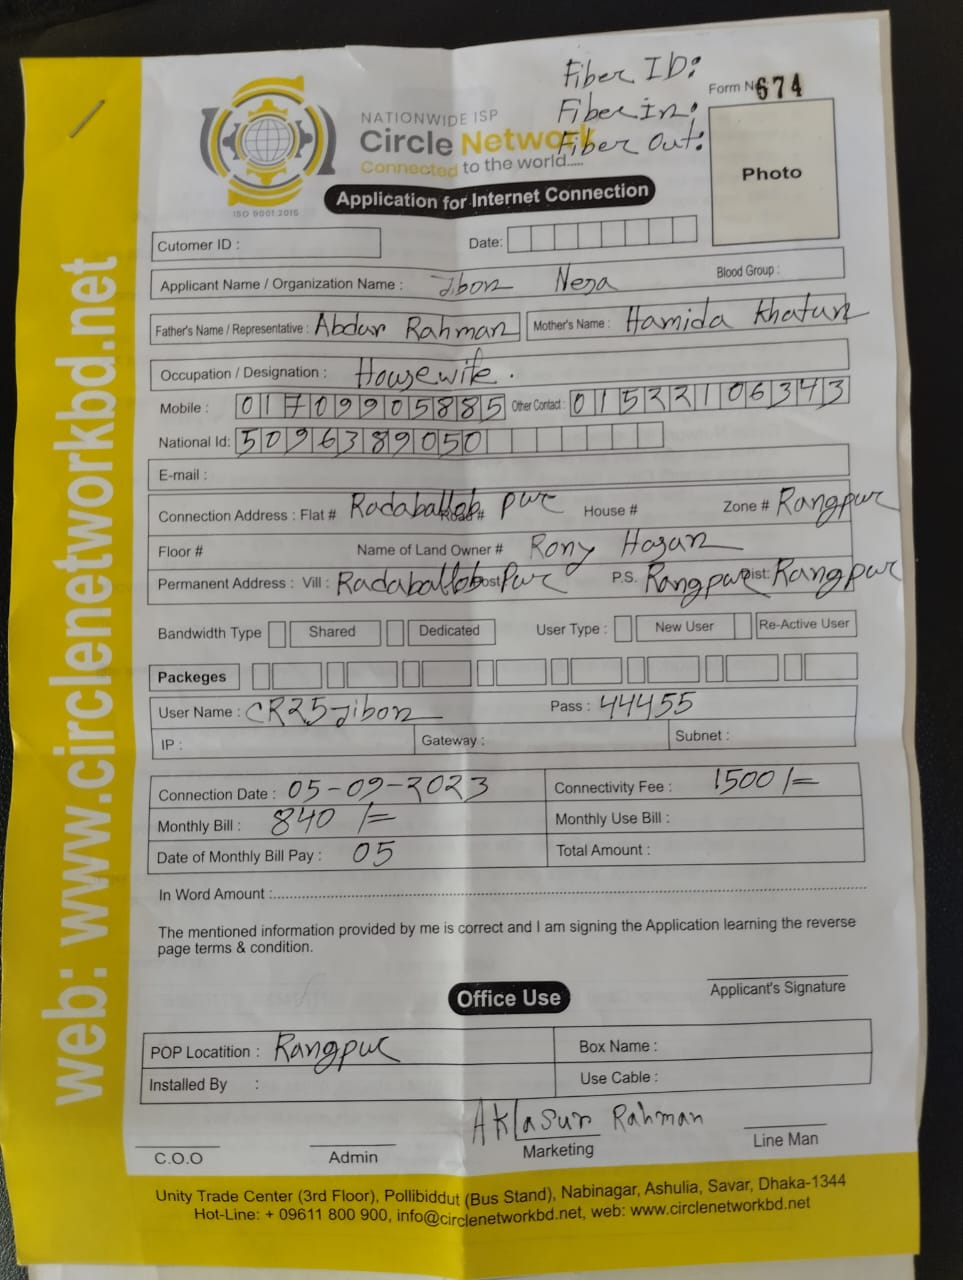 Fiber ID:
Form No 674
NATIONWIDE ISP
Fiber in:
Circle Network
Fiber Out:
Connected to the world.....
Photo
ISO 9001:2015
Application for Internet Connection
Cutomer ID :
Date:
Applicant Name / Organization Name : Jibon Nesa Blood Group :
Father's Name / Representative : Abdur Rahman Mother's Name : Hamida Khatun
Occupation / Designation : Housewife.
Mobile : 01709905885 Other Contact : 01522106343
National Id: 5096389050
E-mail :
Connection Address : Flat # Radaballob pur Road # House # Zone # Rangpur
Floor # Name of Land Owner # Rony Hasan
Permanent Address : Vill : Radaballob Post Pur P.S. Rangpur Dist: Rangpur
Bandwidth Type Shared Dedicated User Type : New User Re-Active User
Packeges
User Name : CR25jibon Pass : 44455
IP : Gateway : Subnet :
Connection Date : 05-09-2023 Connectivity Fee : 1500/=
Monthly Bill : 840/= Monthly Use Bill :
Date of Monthly Bill Pay : 05 Total Amount :
In Word Amount :
The mentioned information provided by me is correct and I am signing the Application learning the reverse
page terms & condition.
Applicant's Signature
Office Use
POP Locatition : Rangpur Box Name :
Installed By : Use Cable :
Aklasur Rahman
C.O.O Admin Marketing Line Man
Unity Trade Center (3rd Floor), Pollibiddut (Bus Stand), Nabinagar, Ashulia, Savar, Dhaka-1344
Hot-Line: + 09611 800 900, info@circlenetworkbd.net, web: www.circlenetworkbd.net
web: www.circlenetworkbd.net